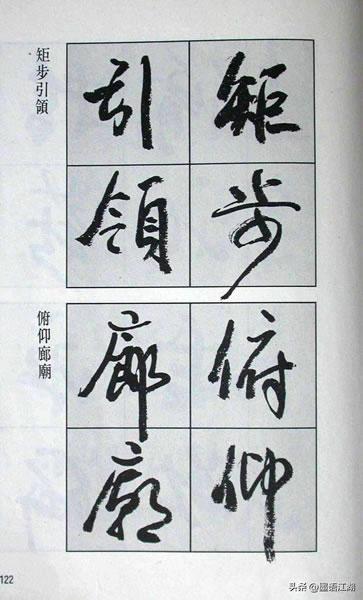 矩步
引領
矩步引領
俯仰
廊廟
俯仰廊廟
122
头条